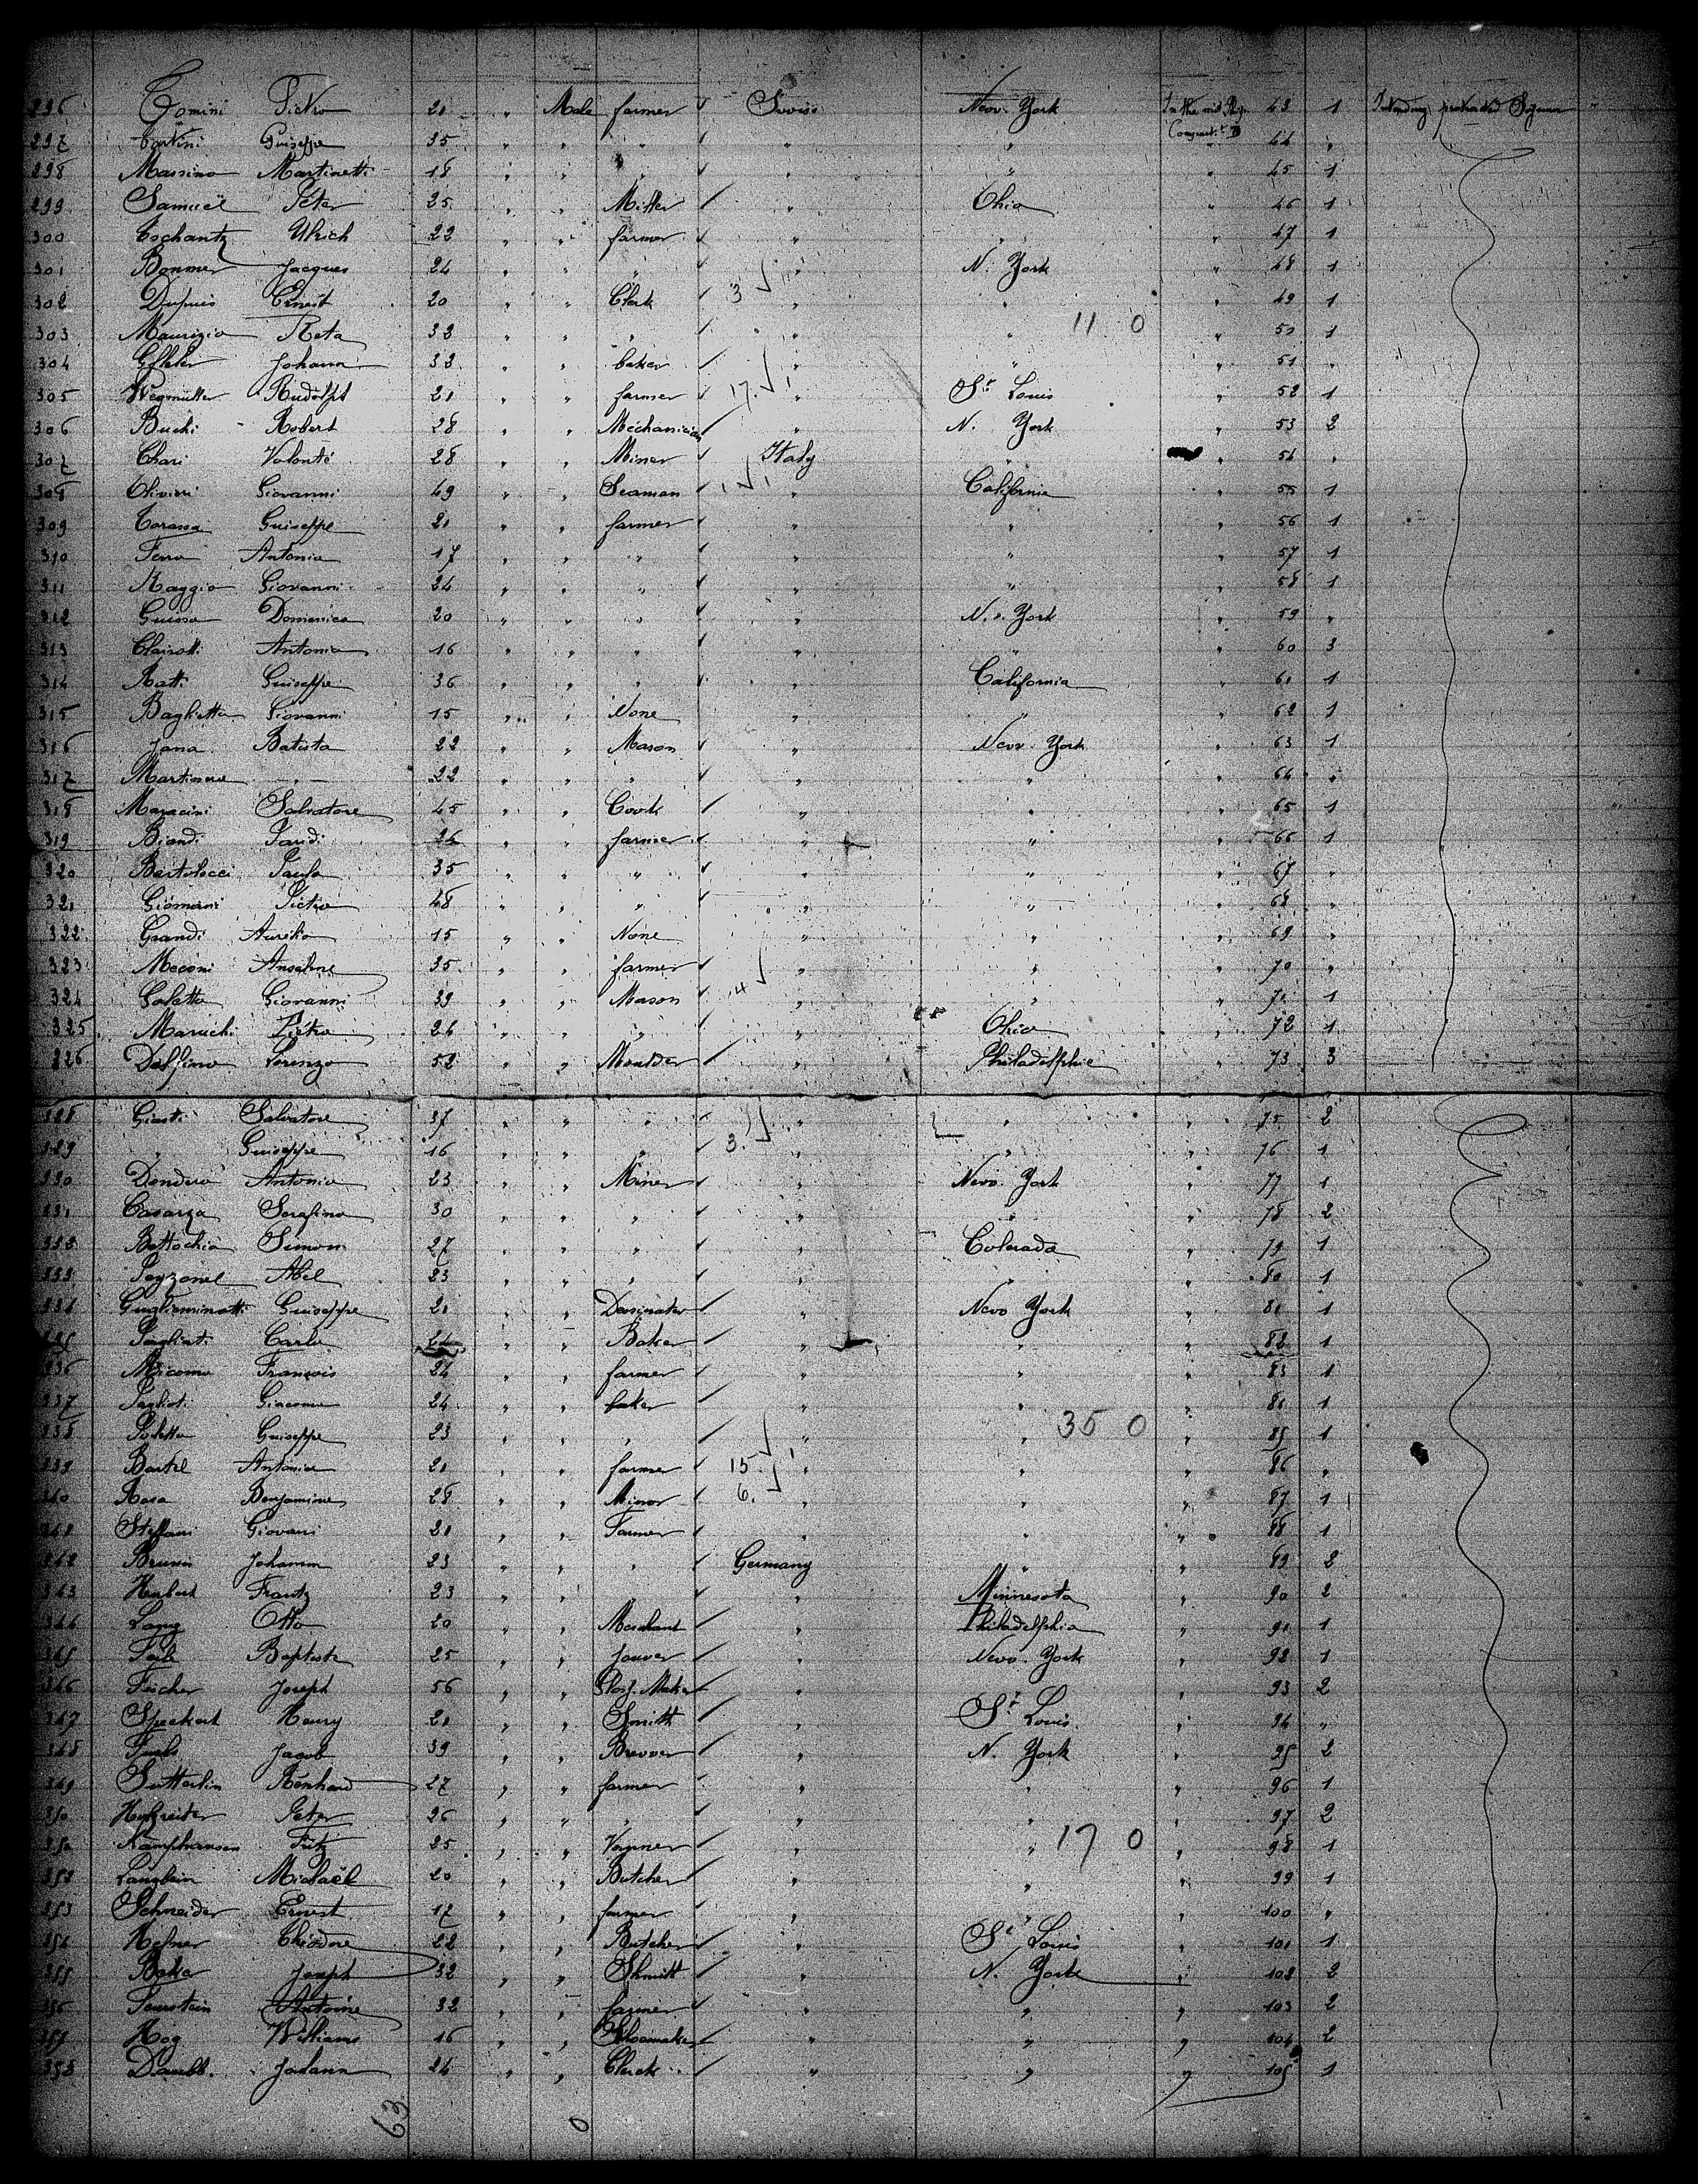 296 Comini Pietro 21 " Male farmer Swiss New. York In the mid Ship. 43 1 Intending protracted Sojourn
Compart.t D
297 Cortini Guiseppe 35 " " " " " " 44 "
298 Massino Martinetti 18 " " " " " " 45 1
299 Samuel Peter 25 " " Miller " Ohio " 46 1
300 Eschantz Ulrich 22 " " farmer " " " 47 1
301 Bonmer Jacques 24 " " " " N. York " 48 1
302 Dupuis Ernest 20 " " Clerk 3 " " " 49 1
303 Maurizio Reta 33 " " " " " 11 0 " 50 1
304 Johann 33 " " baker " " " 51 "
305 Wegmüller Rudolph 21 " " farmer 17 " St Louis " 52 1
306 Buchi Robert 28 " " Mechanician " N. York " 53 2
307 Chari Volonté 28 " " Miner Italy " " 54 "
308 Olivieri Giovanni 49 " " Seaman 1 " California " 55 1
309 Guiseppe 21 " " farmer " " " 56 1
310 Ferro Antonio 17 " " " " " " 57 1
311 Raggio Giovanni 24 " " " " " " 58 1
312 Domenico 20 " " " " N. York " 59 "
313 Antonio 16 " " " " " " 60 3
314 Ratti Guiseppe 36 " " " " California " 61 1
315 Baglietto Giovanni 15 " " None " " " 62 1
316 Jana Batista 22 " " Mason " New. York " 63 1
317 " 22 " " " " " " 64 "
318 Maracini Salvatore 45 " " Cook " " " 65 1
319 Biandi 26 " " farmer " " " 66 1
320 Bertolocci Paulo 35 " " " " " " 67 "
321 Giomani Pietro 48 " " " " " " 68 "
322 Grandi Aurelio 15 " " None " " " 69 "
323 Meconi Anselme 35 " " farmer " " " 70 "
324 Galetto Giovanni 39 " " Mason 4 " " " 71 1
325 Maruchi Pietro 26 " " " " Ohio " 72 1
326 Delfino Lorenzo 52 " " Moulder " Philadelphie " 73 3
328 Giusti Salvatore 37 " " " " " " 75 2
329 " Guiseppe 16 " " " 3 " " " 76 1
330 Dondero Antonio 23 " " Miner " New. York " 77 1
331 Casarza Serafino 30 " " " " " " 78 2
332 Bettochia Simon 27 " " " " Colorado " 79 1
333 Peyzonel Abel 23 " " " " " " 80 1
334 Guglieminotti Guiseppe 21 " " Dessinator " New York " 81 1
335 Pagliati Carlo 24 " " Baker " " " 82 1
336 Micomo François 24 " " farmer " " " 83 1
337 Giacomo 24 " " baker " " " 84 1
338 Poletto Guiseppe 23 " " " " " 35 0 " 85 1
339 Bartel Antonio 21 " " farmer 15 " " " 86 "
340 Rosa Benjamino 28 " " Minor 6 " " " 87 1
341 Steffani Giovani 21 " " Farmer " " " 88 1
342 Brunn Johannn 23 " " " Germany " " 89 2
343 Herbert Frantz 23 " " " " Minnesota " 90 2
344 Lang Otto 20 " " Merchant " Philadelphia " 91 1
345 Baptiste 25 " " " New. York " 92 1
346 Fischer Joseph 56 " " " " 93 2
347 Speckert Henry 21 " " Smith " St Louis " 94 "
348 Fuchs Jacob 39 " " Brewer " N. York " 95 2
349 Sutterlin Renhard 27 " " farmer " " " 96 1
350 Hufreiter Peter 26 " " " " " " 97 2
351 Kamphausen Fritz 25 " " " " 17 0 " 98 1
352 Langbein Michaël 20 " " Butcher " " " 99 1
353 Schneider Ernest 17 " " farmer " " " 100 "
354 Hefner Théodore 22 " " Butcher " St Louis " 101 1
355 Joseph 32 " " Shmitt " N. York " 102 2
356 Feurstein Antoine 32 " " farmer " " " 103 2
357 Hog Williams 16 " " Shoemaker " " " 104 2
358 Johann 24 " " Clerck " " " 105 1
63 0